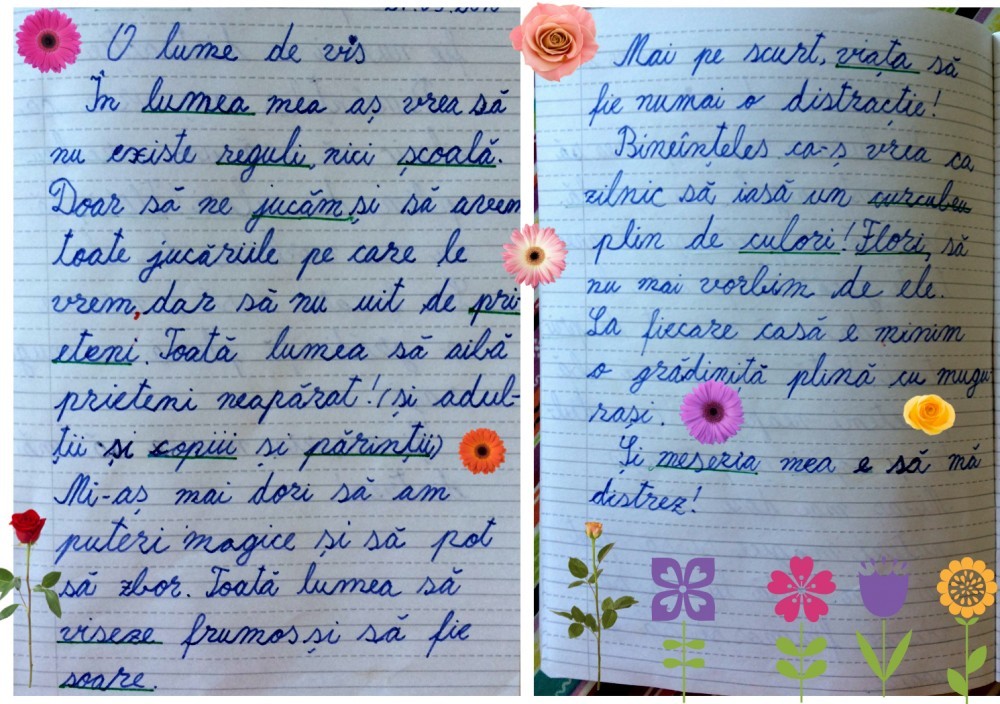 O lume de vis
În lumea mea aș vrea să
nu existe reguli, nici școală.
Doar să ne jucăm și să avem
toate jucăriile pe care le
vrem, dar să nu uit de pri-
eteni. Toată lumea să aibă
prieteni neapărat! (și adul-
ții și copiii și părinții)
Mi-aș mai dori să am
puteri magice și să pot
să zbor. Toată lumea să
viseze frumos și să fie
soare.
Mai pe scurt, viața să
fie numai o distracție!
Bineînțeles ca-ș vrea ca
zilnic să iasă un curcubeu
plin de culori! Flori, să
nu mai vorbim de ele.
La fiecare casă e minim
o grădiniță plină cu mugu-
rași.
Și meseria mea e să mă
distrez!